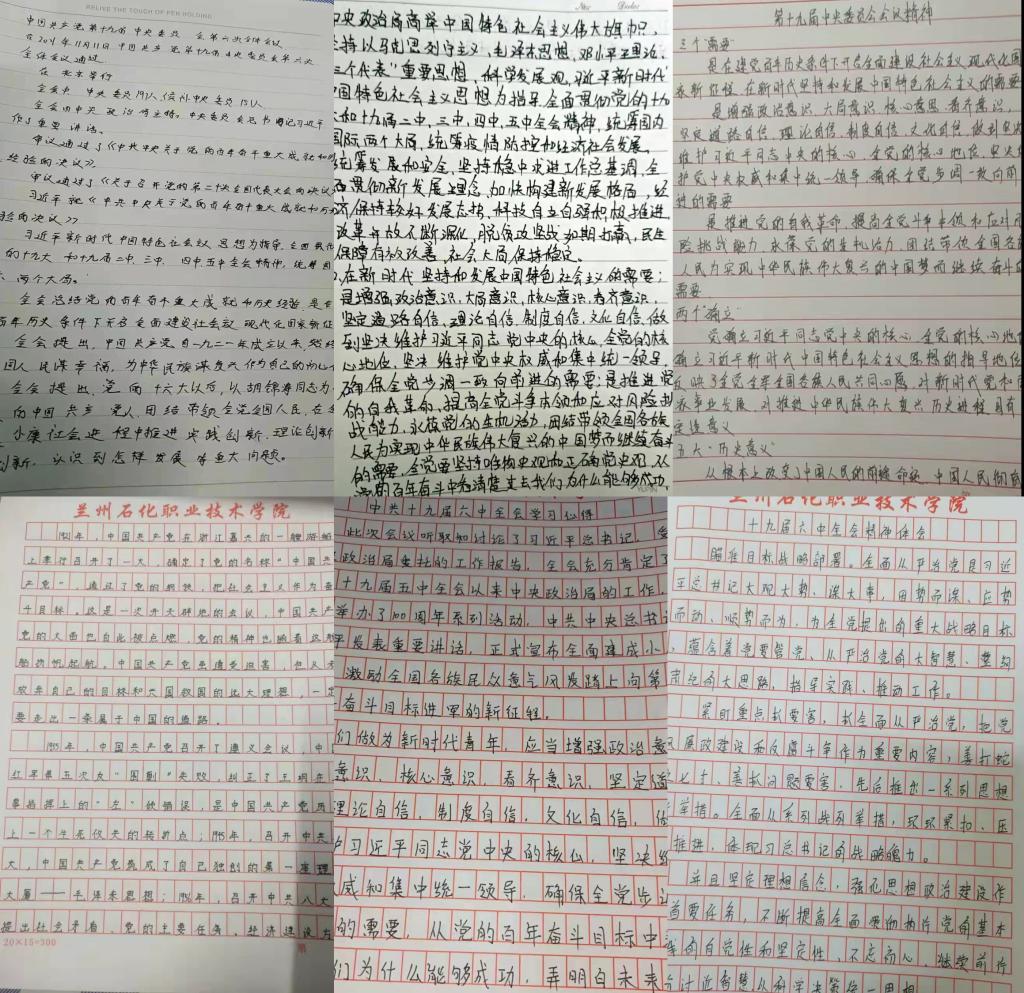 RELIVE THE TOUCH OF PEN HOLDING
中国共产党第十九届中央委员会第六次全体会议
全体会议通过
在北京举行
作了重要讲话。
审议通过了《中共中央关于党的百年奋斗重大成就和历
经验的决议》。
审议通过了《关于召开党的第二十次全国代表大会的决议》
习近平就《中共中央关于党的百年奋斗重大成就和历史
验的决议》》
习近平新时代中国特色社会主义思想为指导,全面贯彻
的十九大和十九届二中、三中、四中、五中全会精神,统筹国
、两个大局。
全会总结党的百年奋斗重大成就和历史经验是在
百年历史条件下开启全面建设社会主义现代化国家新征
全会提出,中国共产党自一九二一年成立以来,始终
国人民谋幸福,为中华民族谋复兴作为自己的初心
全会提出,党的十六大以后,以胡锦涛同志为
的中国共产党人,团结带领全党全国人民,在全
小康社会进程中推进实践创新、理论创新
创新,认识到怎样发展等重大问题。
中央政治局高举中国特色社会主义伟大旗帜,
坚持以马克思列宁主义、毛泽东思想、邓小平理论、
三个代表"重要思想、科学发展观、习近平新时代
中国特色社会主义思想为指导,全面贯彻党的十九
大和十九届二中、三中、四中、五中全会精神,统筹国内
国际两个大局,统筹疫情防控和经济社会发展,
统筹发展和安全,坚持稳中求进工作总基调,全
面贯彻新发展理念,加快构建新发展格局,经
济保持较好发展态势,科技自立自强积极推进,
改革开放不断深化,脱贫攻坚战如期打赢,民生
保障有效改善,社会大局保持稳定。
在新时代坚持和发展中国特色社会主义的需要;
是增强政治意识、大局意识、核心意识、看齐意识,
坚定道路自信、理论自信、制度自信、文化自信,做
到坚决维护习近平同志党中央的核心、全党的核
心地位,坚决维护党中央权威和集中统一领导,
确保全党步调一致向前进的需要;是推进党
的自我革命、提高全党斗争本领和应对风险挑
战能力、永葆党的生机活力、团结带领全国各族
人民为实现中华民族伟大复兴的中国梦而继续奋斗
的需要。全党要坚持唯物史观和正确党史观,从
党的百年奋斗中看清楚过去我们为什么能够成功、
第十九届中央委员会会议精神
三个"需要"
是在建党百年历史条件下开启全面建设社会主义现代化国
家新征程、在新时代坚持和发展中国特色社会主义的需要
是增强政治意识、大局意识、核心意思、看齐意识,
坚定道路自信、理论自信、制度自信、文化自信,做到坚决
维护习近平同志中央的核心、全党的核心地位,坚决维
护党中央权威和集中统一领导,确保全党步调一致向前
进的需要
是推进党的自我革命、提高全党斗争本领和应对风
险挑战能力、永葆党的生机活力、团结带领全国各族
人民为实现中华民族伟大复兴的中国梦而继续奋斗的
需要
"两个确立"
党确立习近平同志党中央的核心、全党的核心地位
确立习近平新时代中国特色社会主义思想的指导地位
反映了全党全军全国各族人民共同心愿,对新时代党和国
家事业发展、对推进中华民族伟大复兴历史进程具有
定性意义
五大"历史意义"
从根本上改变了中国人民的前途命运,中国人民彻底
兰州石化职业技术学院
1921年,中国共产党在浙江嘉兴的一艘游船
上举行召开了一大,确定了党的名称"中国共
产党",通过了党的纲领,把社会主义作为奋
斗目标。这是一次开天辟地的会议,中国共产
党的火苗也自此被点燃,党的精神也随着这艘
船扬帆起航。中国共产党虽遭受迫害,但从未
放弃自己的目标和共国救国的远大理想,一定
要走出一条属于中国的道路。
1935年,中国共产党召开了遵义会议,中
红军第五次反"围剿"失败,纠正了王明在
事指挥上的"左"倾错误,是中国共产党历
上一个生死攸关的转折点;1945年,召开中共
大,中国共产党完成了自己独创的第一座理
大厦——毛泽东思想;1956年,召开中共八大
提出社会矛盾、党的主要任务、经济建设方
20×15=300
第
中共十九届六中全会学习心得
此次会议听取和讨论了习近平总书记,受
政治局委托的工作报告,全会充分肯定了
十九届五中全会以来中央政治局的工作。
举办了100周年系列活动,中共中央总书记
平发表重要讲话,正式宣布全面建成小
激励全国各族民众意气风发踏上向第
奋斗目标进军的新征程。
们做为新时代青年,应当增强政治意
意识、核心意识、看齐意识,坚定道
理论自信、制度自信、文化自信,做
习近平同志党中央的核心,坚决维
威和集中统一领导,确保全党步
的需要,从党的百年奋斗目标中
们为什么能够成功,弄明白未来
兰州石化职业技术学院
十九届六中全会精神体会
瞄准目标战略部署。全面从严治党是习近
平总书记大观大势、谋大事,因势而谋、应势
而动、顺势而为,为全党提出的重大战略目标
,蕴含着党要管党、从严治党的大智慧、整纲
肃纪的大思路,指导实践、推动工作。
紧盯重点抓要害,抓全面从严治党,把党
风廉政建设和反腐斗争作为重要内容,善打蛇
七寸、善抓问题要害,先后推出一系列思想
举措。全面从系列战列举措,环环紧扣、压
推进,体现习总书记的战略魄力。
并且坚定理想信念,强化思想政治建设作
首要任务,不断提高全面贯彻执行党的基本
的自觉性和坚定性,不忘初心、继续前行